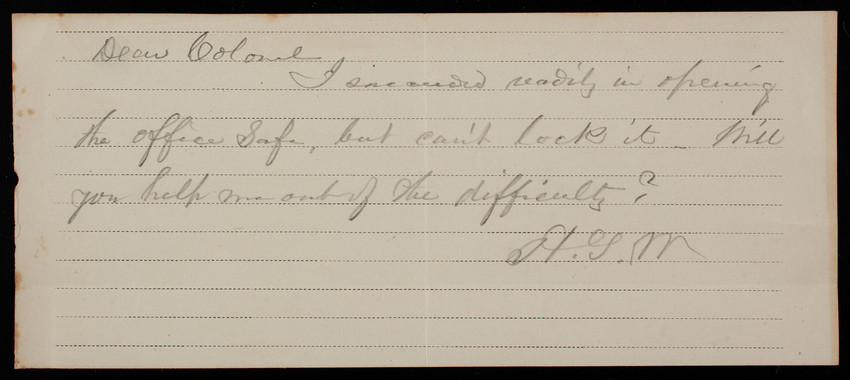 Dear Colonel
I succeeded readily in opening
the office safe, but can't lock it - Will
you help me out of the difficulty?
H. G. W